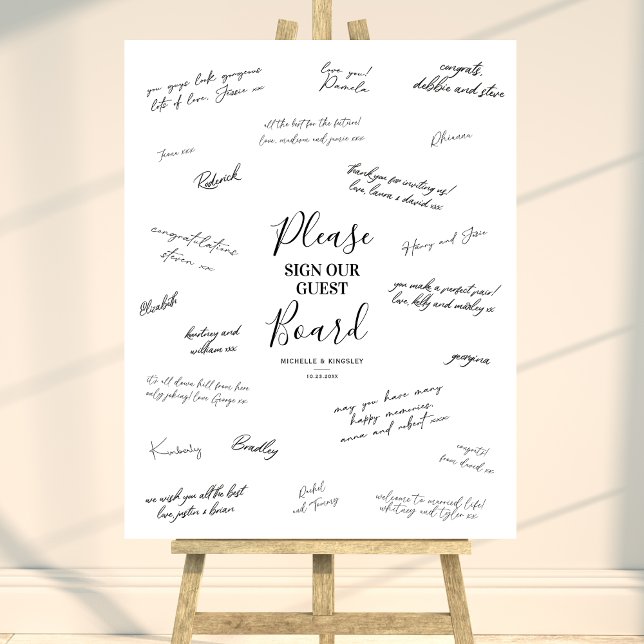 you guys look gorgeous
lots of love, Jessie xx
love, you!
Pamela
congrats,
debbie and steve
all the best for the future!
love, madison and jamie xx
Rhianna
Fiona xxx
Roderick
thank you for inviting us!
love, laura & david xxx
congratulations
steven xx
Please
SIGN OUR
GUEST
Board
MICHELLE & KINGSLEY
10.23.20XX
Harry and Josie
you make a perfect pair!
love, kelly and marley xx
Elizabeth
kourtney and
william xxx
georgina
it's all down hill from here
only joking! love George xx
may you have many
happy memories,
anna and robert xxxx
Kimberly
Bradley
congratz!
from david xx
we wish you all the best
love, justin & brian
Rachel
and Tommy
welcome to married life!
whitney and tyler xx